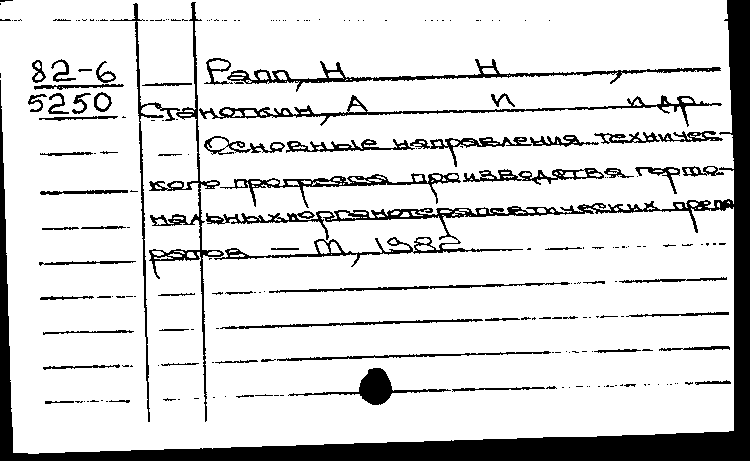 82-6 Рапп, Н Н ,
5250 Станоткин, А П и др.
Основные направления техничес-
кого прогресса производства гормо-
нальных и органотерапевтических препа
ратов — М, 1982